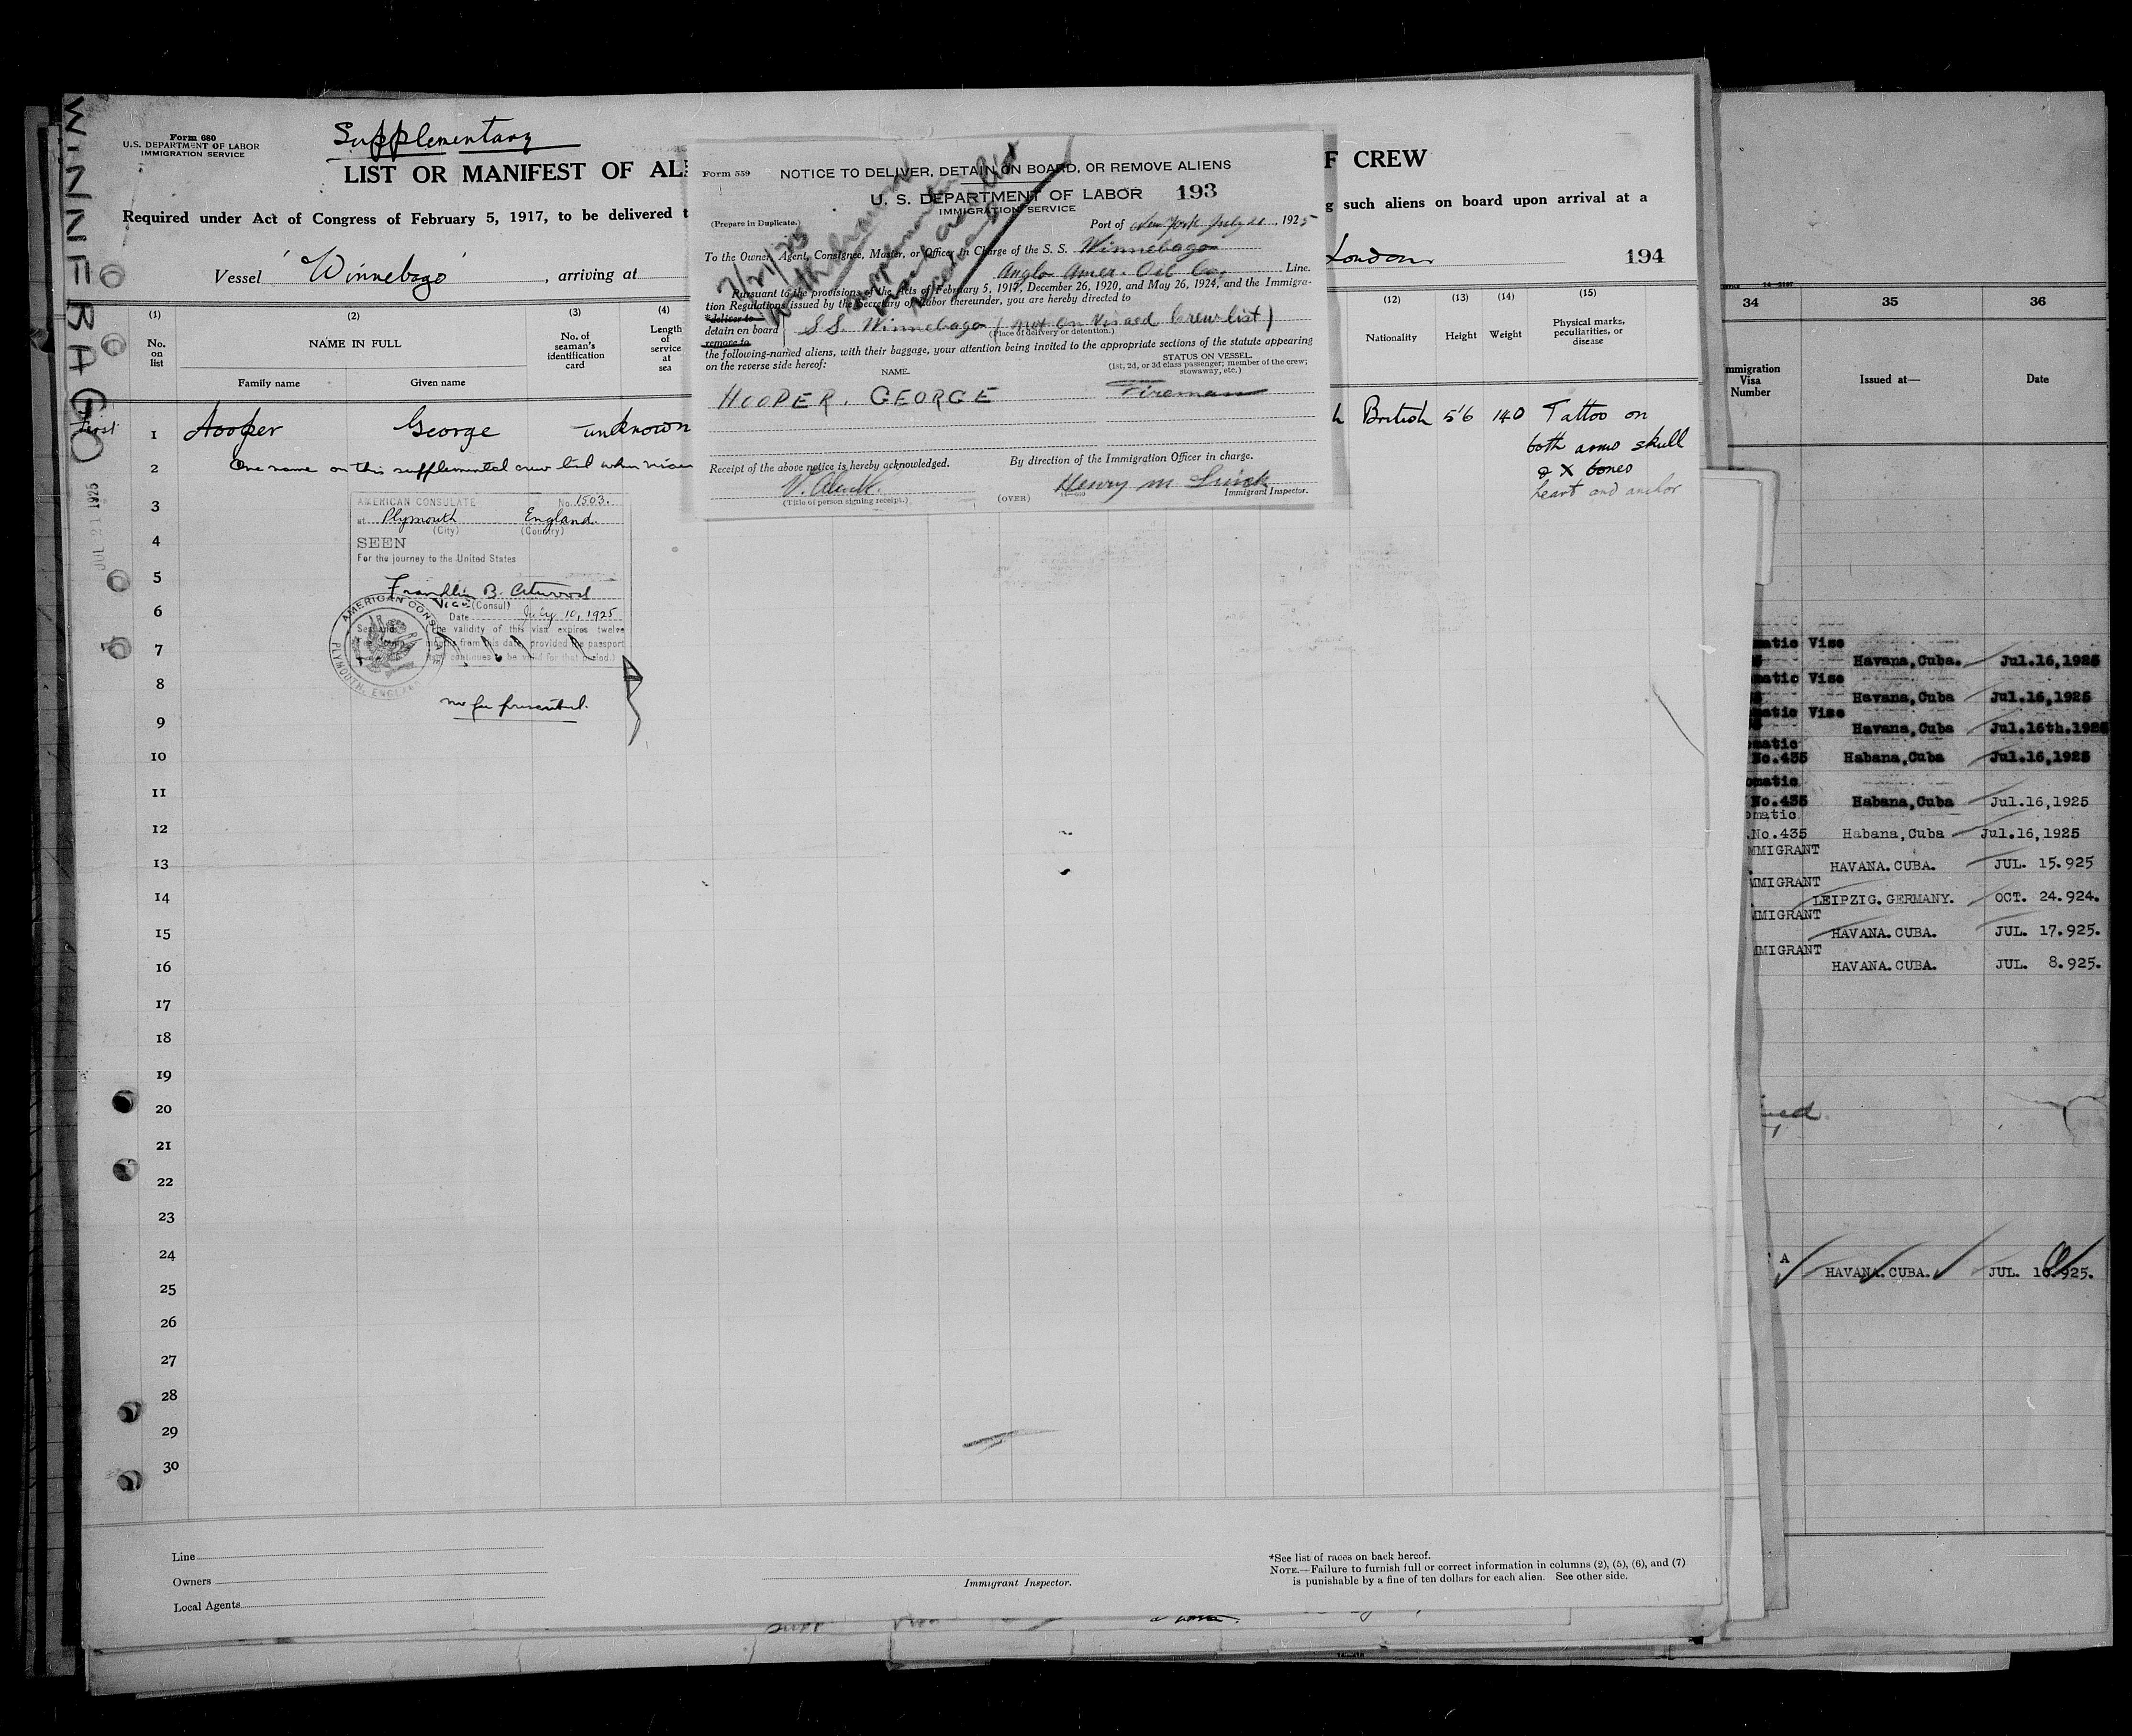 WINNEBAGO
Form 680
U.S. DEPARTMENT OF LABOR
IMMIGRATION SERVICE
Supplementary
LIST OR MANIFEST OF
F CREW
Required under Act of Congress of February 5, 1917, to be delivered t
g such aliens on board upon arrival at a
Vessel "Winnebago", arriving at
London
194
(1)
No. on list
(2)
NAME IN FULL
Family name
Given name
(3)
No. of seaman's identification card
(4)
Length of service at sea
(12)
Nationality
(13)
Height
(14)
Weight
(15)
Physical marks, peculiarities, or disease
First
1 Hooper George unknown
h British 5'6 140 Tattoo on
both arms skull
& X bones
heart and anchor
2 One name on this supplemental crew list when
JUL 21 1925
AMERICAN CONSULATE No. 1503.
at Plymouth England.
(City) (Country)
SEEN
For the journey to the United States
Franklin B. Atwood
Vice (Consul)
Date July 10, 1925
(The validity of this visa expires twelve
from this date, provided the passport
continues to be valid for that period.)
AMERICAN CONSULATE
PLYMOUTH, ENGLAND
no fee presented.
3
4
5
6
7
8
9
10
11
12
13
14
15
16
17
18
19
20
21
22
23
24
25
26
27
28
29
30
Line
Owners
Local Agents
Immigrant Inspector.
*See list of races on back hereof.
NOTE.—Failure to furnish full or correct information in columns (2), (5), (6), and (7)
is punishable by a fine of ten dollars for each alien. See other side.
Form 559
NOTICE TO DELIVER, DETAIN ON BOARD, OR REMOVE ALIENS
U. S. DEPARTMENT OF LABOR 193
IMMIGRATION SERVICE
(Prepare in Duplicate.)
Port of New York July 21, 1925
To the Owner, Agent, Consignee, Master, or Officer in Charge of the S. S. Winnebago
Anglo Amer. Oil Co. Line.
Pursuant to the provisions of the Acts of February 5, 1917, December 26, 1920, and May 26, 1924, and the Immigra-
tion Regulations issued by the Secretary of Labor thereunder, you are hereby directed to
*deliver to
detain on board S.S. Winnebago (not on Visaed Crew list)
remove to
(Place of delivery or detention.)
the following-named aliens, with their baggage, your attention being invited to the appropriate sections of the statute appearing
on the reverse side hereof:
NAME.
STATUS ON VESSEL.
(1st, 2d, or 3d class passenger; member of the crew;
stowaway, etc.)
HOOPER. GEORGE Fireman
Receipt of the above notice is hereby acknowledged.
By direction of the Immigration Officer in charge.
Henry M
Immigrant Inspector.
(Title of person signing receipt.)
(OVER)
7/21/25
34
Immigration Visa Number
35
Issued at—
36
Date
matic Vise
Havana,Cuba. Jul.16,1925
matic Vise
Havana,Cuba Jul.16,1925
matic Vise
Havana,Cuba Jul.16th.1925
omatic
No.435 Habana,Cuba Jul.16,1925
omatic
No.435 Habana,Cuba Jul.16,1925
omatic
.No.435 Habana,Cuba Jul.16,1925
MMIGRANT
HAVANA.CUBA. JUL. 15.925
MMIGRANT
LEIPZIG.GERMANY. OCT. 24.924.
MMIGRANT
HAVANA.CUBA. JUL. 17.925.
MMIGRANT
HAVANA.CUBA. JUL. 8.925.
A
HAVANA.CUBA. JUL. 10.925.